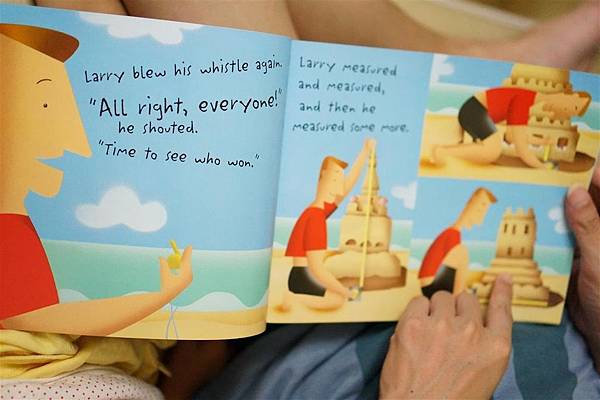 Larry blew his whistle again.
"All right, everyone!"
he shouted.
"Time to see who won."
Larry measured
and measured,
and then he
measured some more.